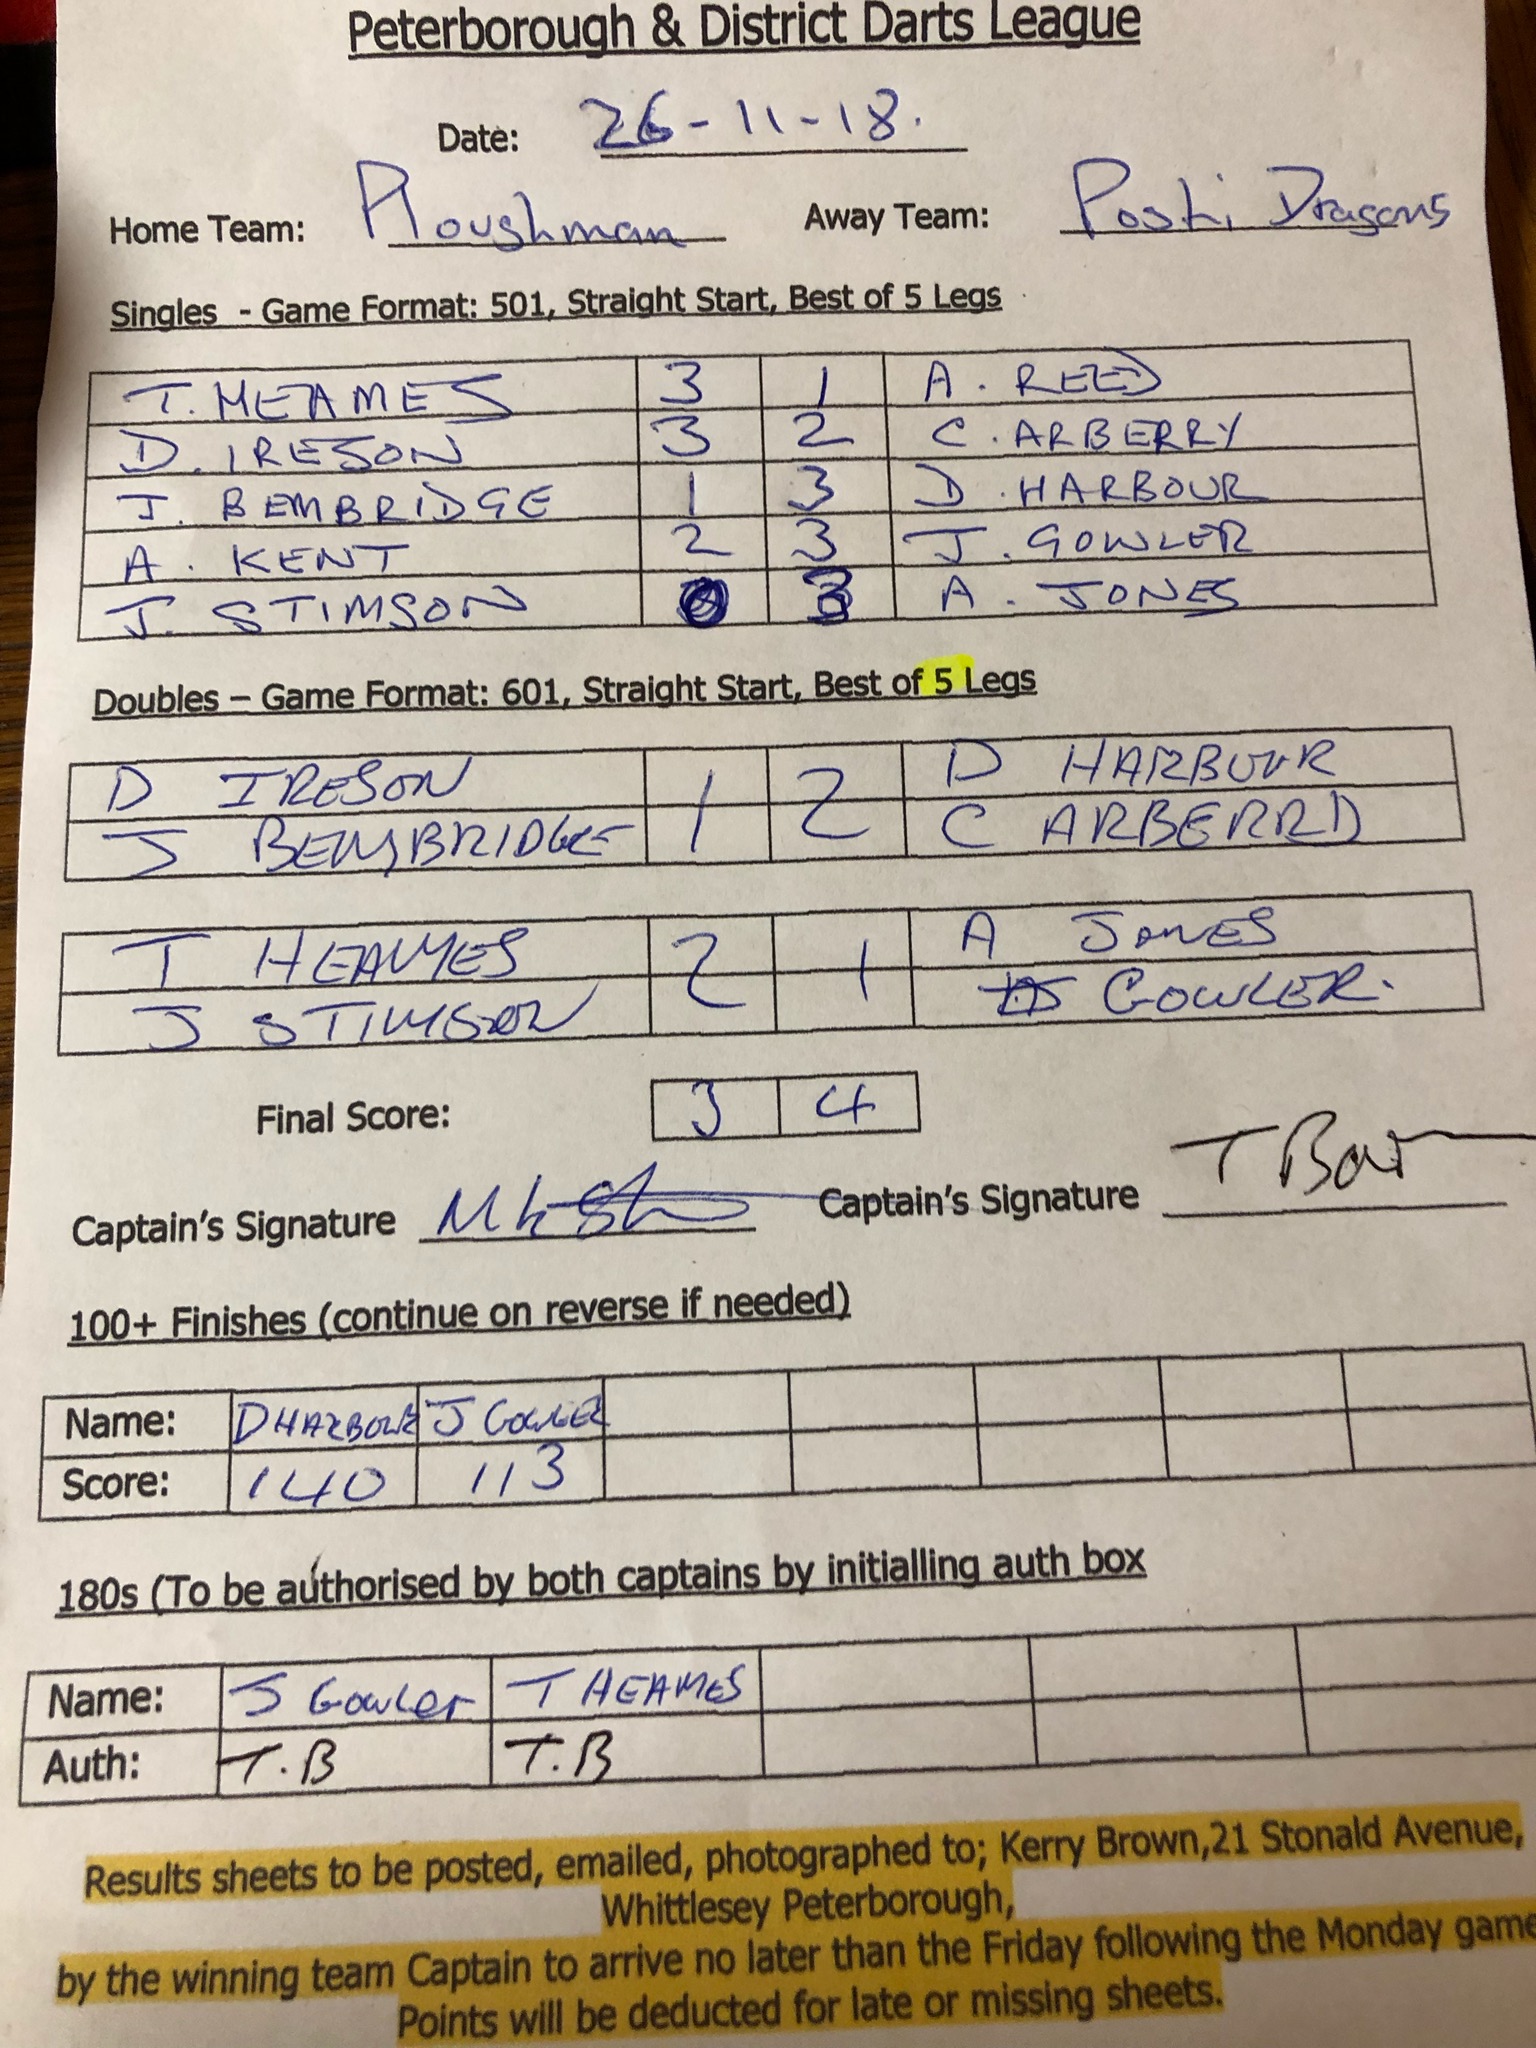 Peterborough & District Darts League
Date: 26-11-18.
Home Team: Ploughman Away Team: Poshi Dragons
Singles - Game Format: 501, Straight Start, Best of 5 Legs
T. HEAMES 3 1 A. REED
D. IRESON 3 2 C. ARBERRY
J. BEMBRIDGE 1 3 D. HARBOUR
A. KENT 2 3 J. GOWLER
J. STIMSON 0 3 A. JONES
Doubles – Game Format: 601, Straight Start, Best of 5 Legs
D IRESON 1 2 D HARBOUR
J BEMBRIDGE C ARBERRD
T HEAMES 2 1 A JONES
J STIMSON J GOWLER.
Final Score: 3 4
Captain's Signature Captain's Signature T Bar
100+ Finishes (continue on reverse if needed)
Name: D HARBOUR J GOWLER
Score: 140 113
180s (To be authorised by both captains by initialling auth box
Name: J Gowler T HEAMES
Auth: T.B T.B
Results sheets to be posted, emailed, photographed to; Kerry Brown,21 Stonald Avenue,
Whittlesey Peterborough,
by the winning team Captain to arrive no later than the Friday following the Monday game
Points will be deducted for late or missing sheets.